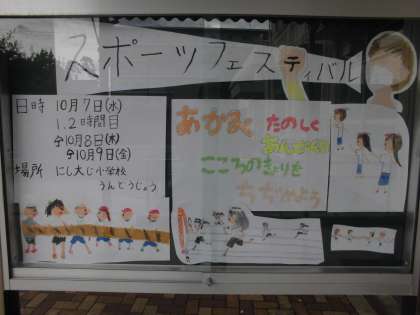 スポーツフェスティバル
日時 10月7日(水)
1.2時間目
⇨10月8日(木)
⇨10月9日(金)
場所 にし大じ小学校
うんどうじょう
あかるく
たのしく
あんぜんに
こころのきょりも
ちぢめよう